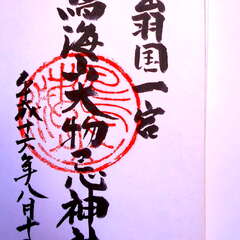 出羽国一宮
鳥海山大物忌神社
平成廿六年八月十